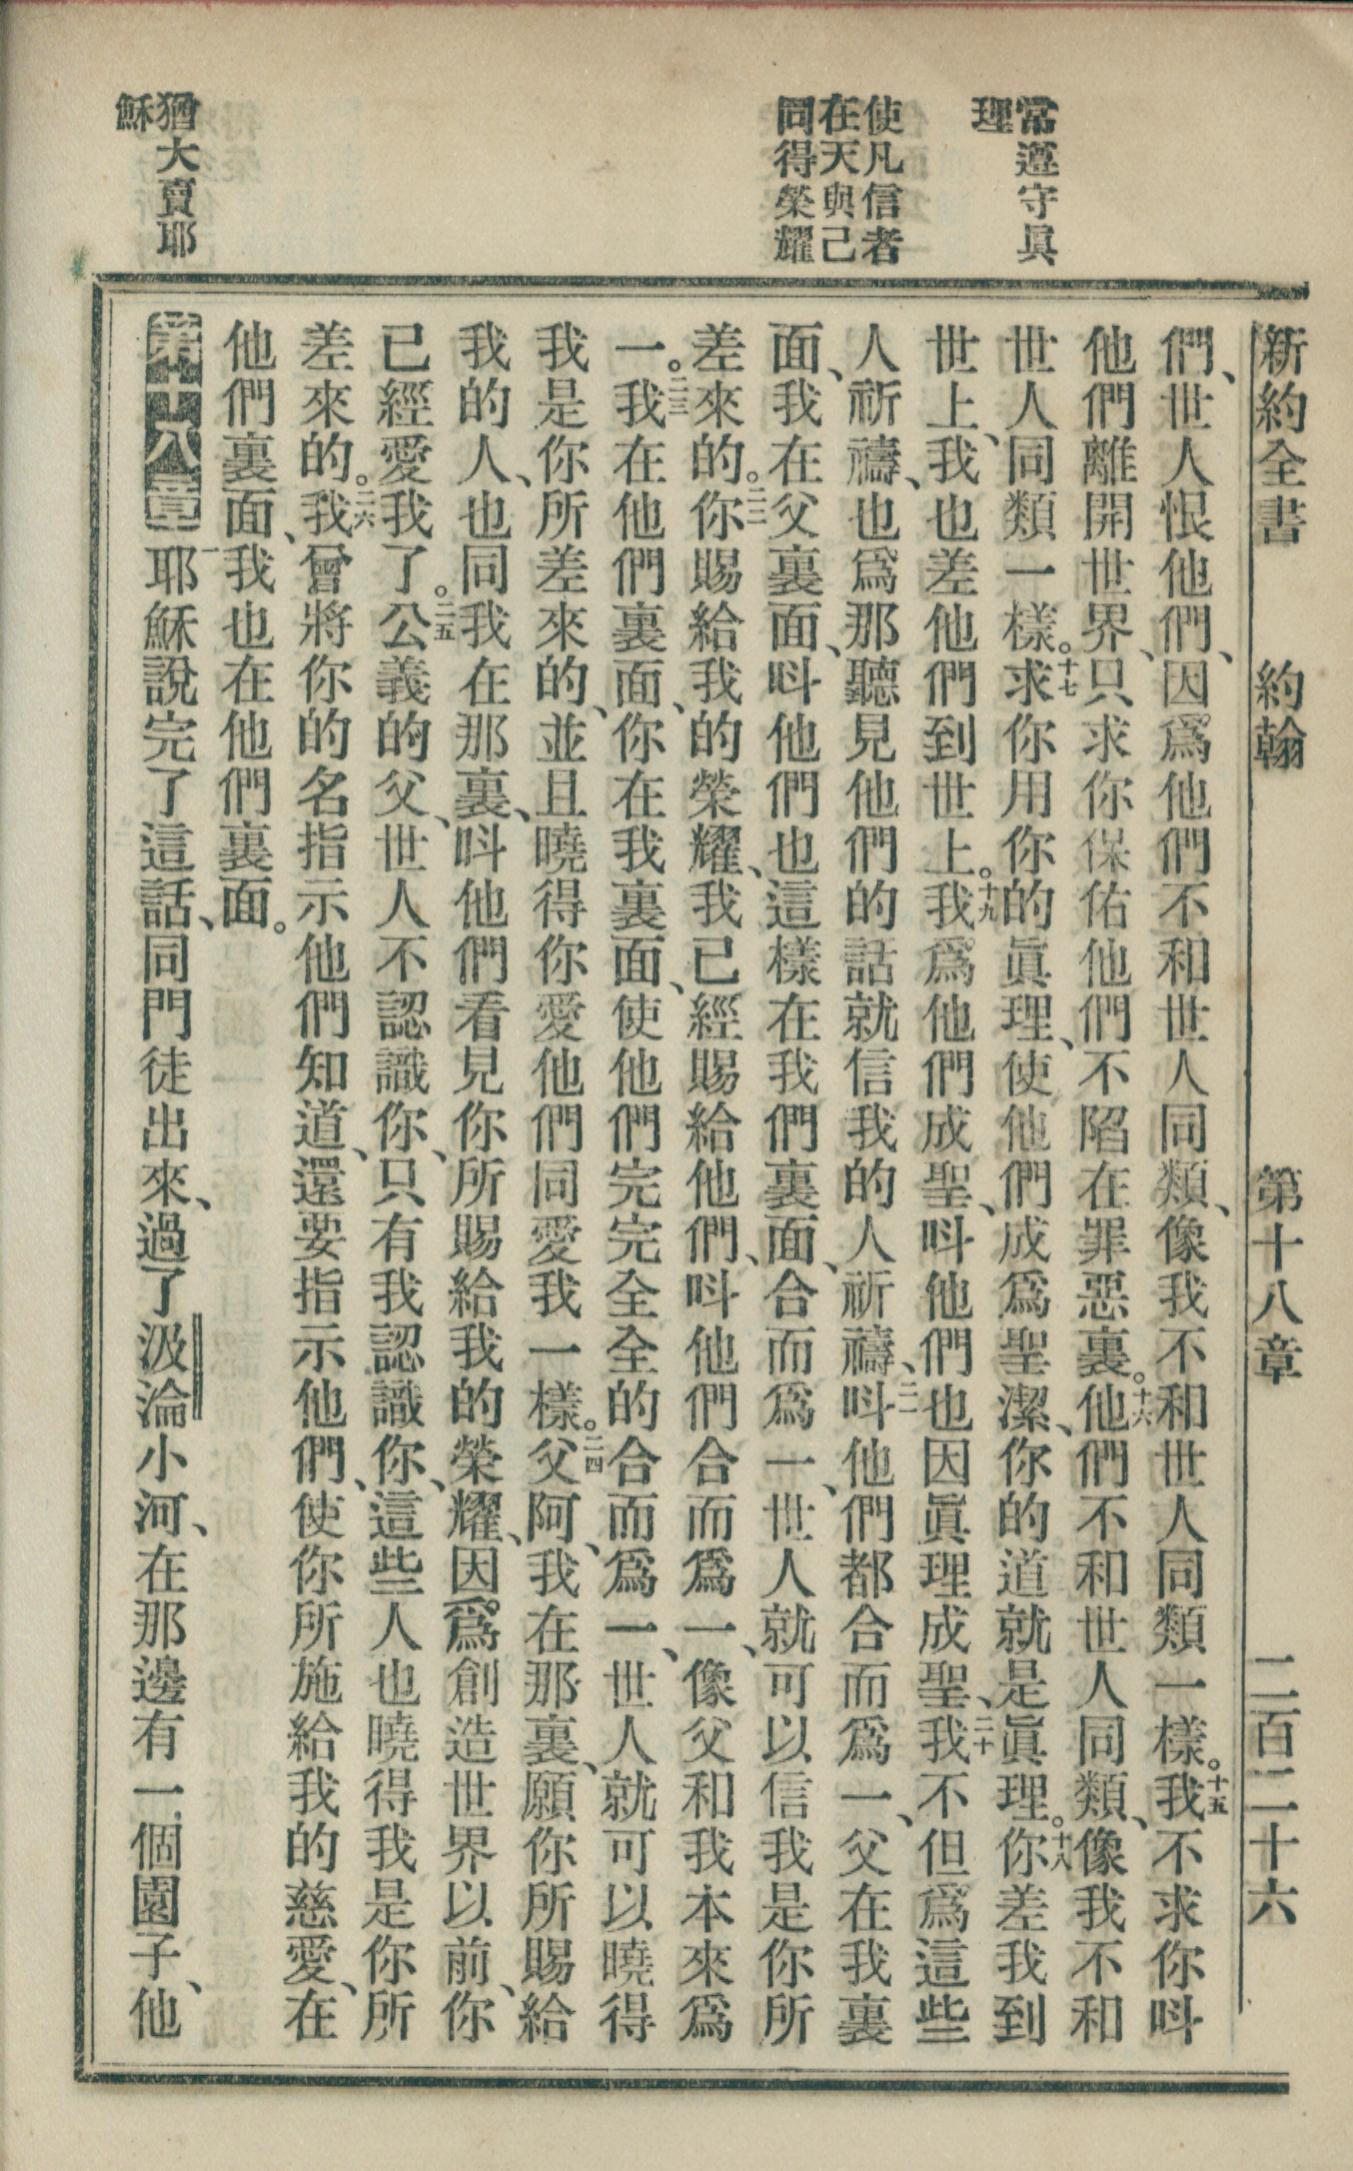 常遵守眞
理
使凡信者
在天與己
同得榮耀
猶大賣耶
穌
新約全書 約翰 第十八章 二百二十六
們、世人恨他們、因爲他們不和世人同類、像我不和世人同類一樣。十五我不求你呌
他們離開世界、只求你保佑他們不陷在罪惡裏。十六他們不和世人同類、像我不和
世人同類一樣。十七求你用你的眞理、使他們成爲聖潔、你的道就是眞理。十八你差我到
世上、我也差他們到世上。十九我爲他們成聖、呌他們也因眞理成聖、二十我不但爲這些
人祈禱、也爲那聽見他們的話就信我的人祈禱、二一呌他們都合而爲一、父在我裏
面、我在父裏面、呌他們也這樣在我們裏面、合而爲一、世人就可以信我是你所
差來的。二二你賜給我的榮耀、我已經賜給他們、呌他們合而爲一、像父和我本來爲
一。二三我在他們裏面、你在我裏面、使他們完完全全的合而爲一、世人就可以曉得
我是你所差來的、並且曉得你愛他們同愛我一樣。二四父阿、我在那裏、願你所賜給
我的人、也同我在那裏、呌他們看見你所賜給我的榮耀、因爲創造世界以前、你
已經愛我了。二五公義的父、世人不認識你、只有我認識你、這些人也曉得我是你所
差來的。二六我曾將你的名指示他們知道、還要指示他們、使你所施給我的慈愛、在
他們裏面、我也在他們裏面。
第十八章 一耶穌說完了這話、同門徒出來、過了汲淪小河、在那邊有一個園子、他